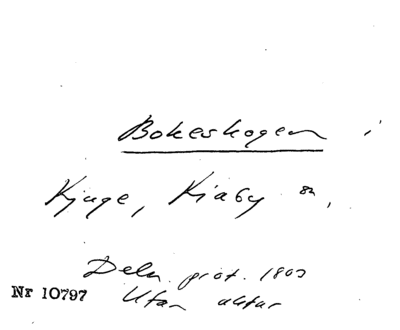 Bokeskogen i
Kjuge, Kiaby sn,
Deln. prot. 1803
Utan aktur
Nr 10797